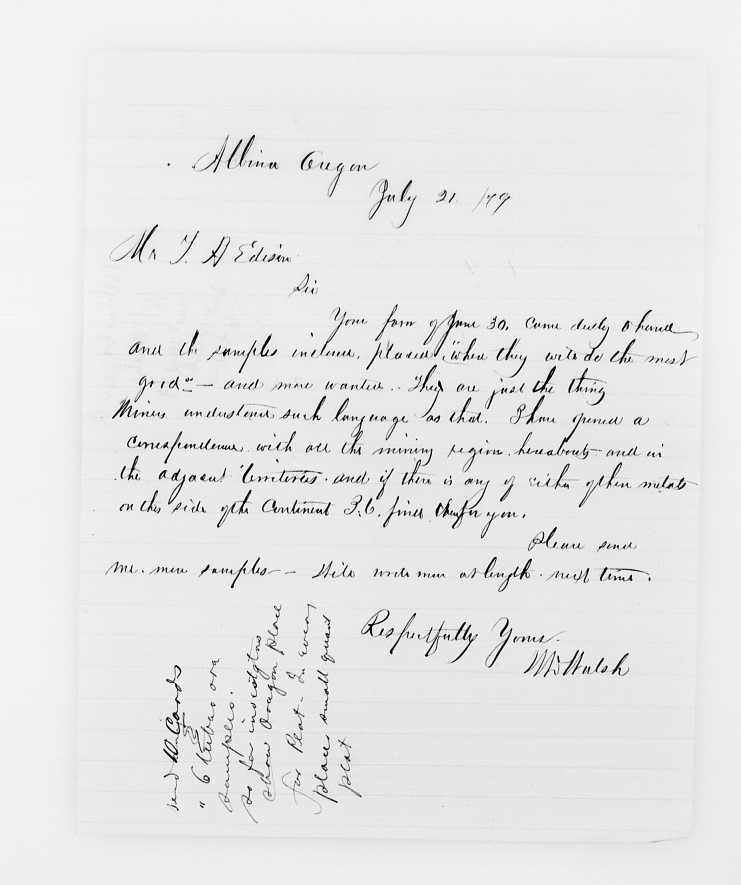 Albina Oregon
July 21 /79
Mr T. A Edison
Sir
Your favor of June 30. Came duly to hand
and the samples inclosed, placed "where they will do the most
good" — and more wanted. They are just the thing
Miners understand such language as that. I have opened a
correspondence with all the mining region hereabouts and in
the adjacent Territories. and if there is any of either of them metals
on this side of the Continent I'll find them for you.
Please send
me. more samples — Will write more at length next time.
Respectfully Yours.
Walsh
send 10 Cards
" 6 tubes ore
samples.
so far investgtns
show Oregon place
for Plat - In every
placer small quant
plat